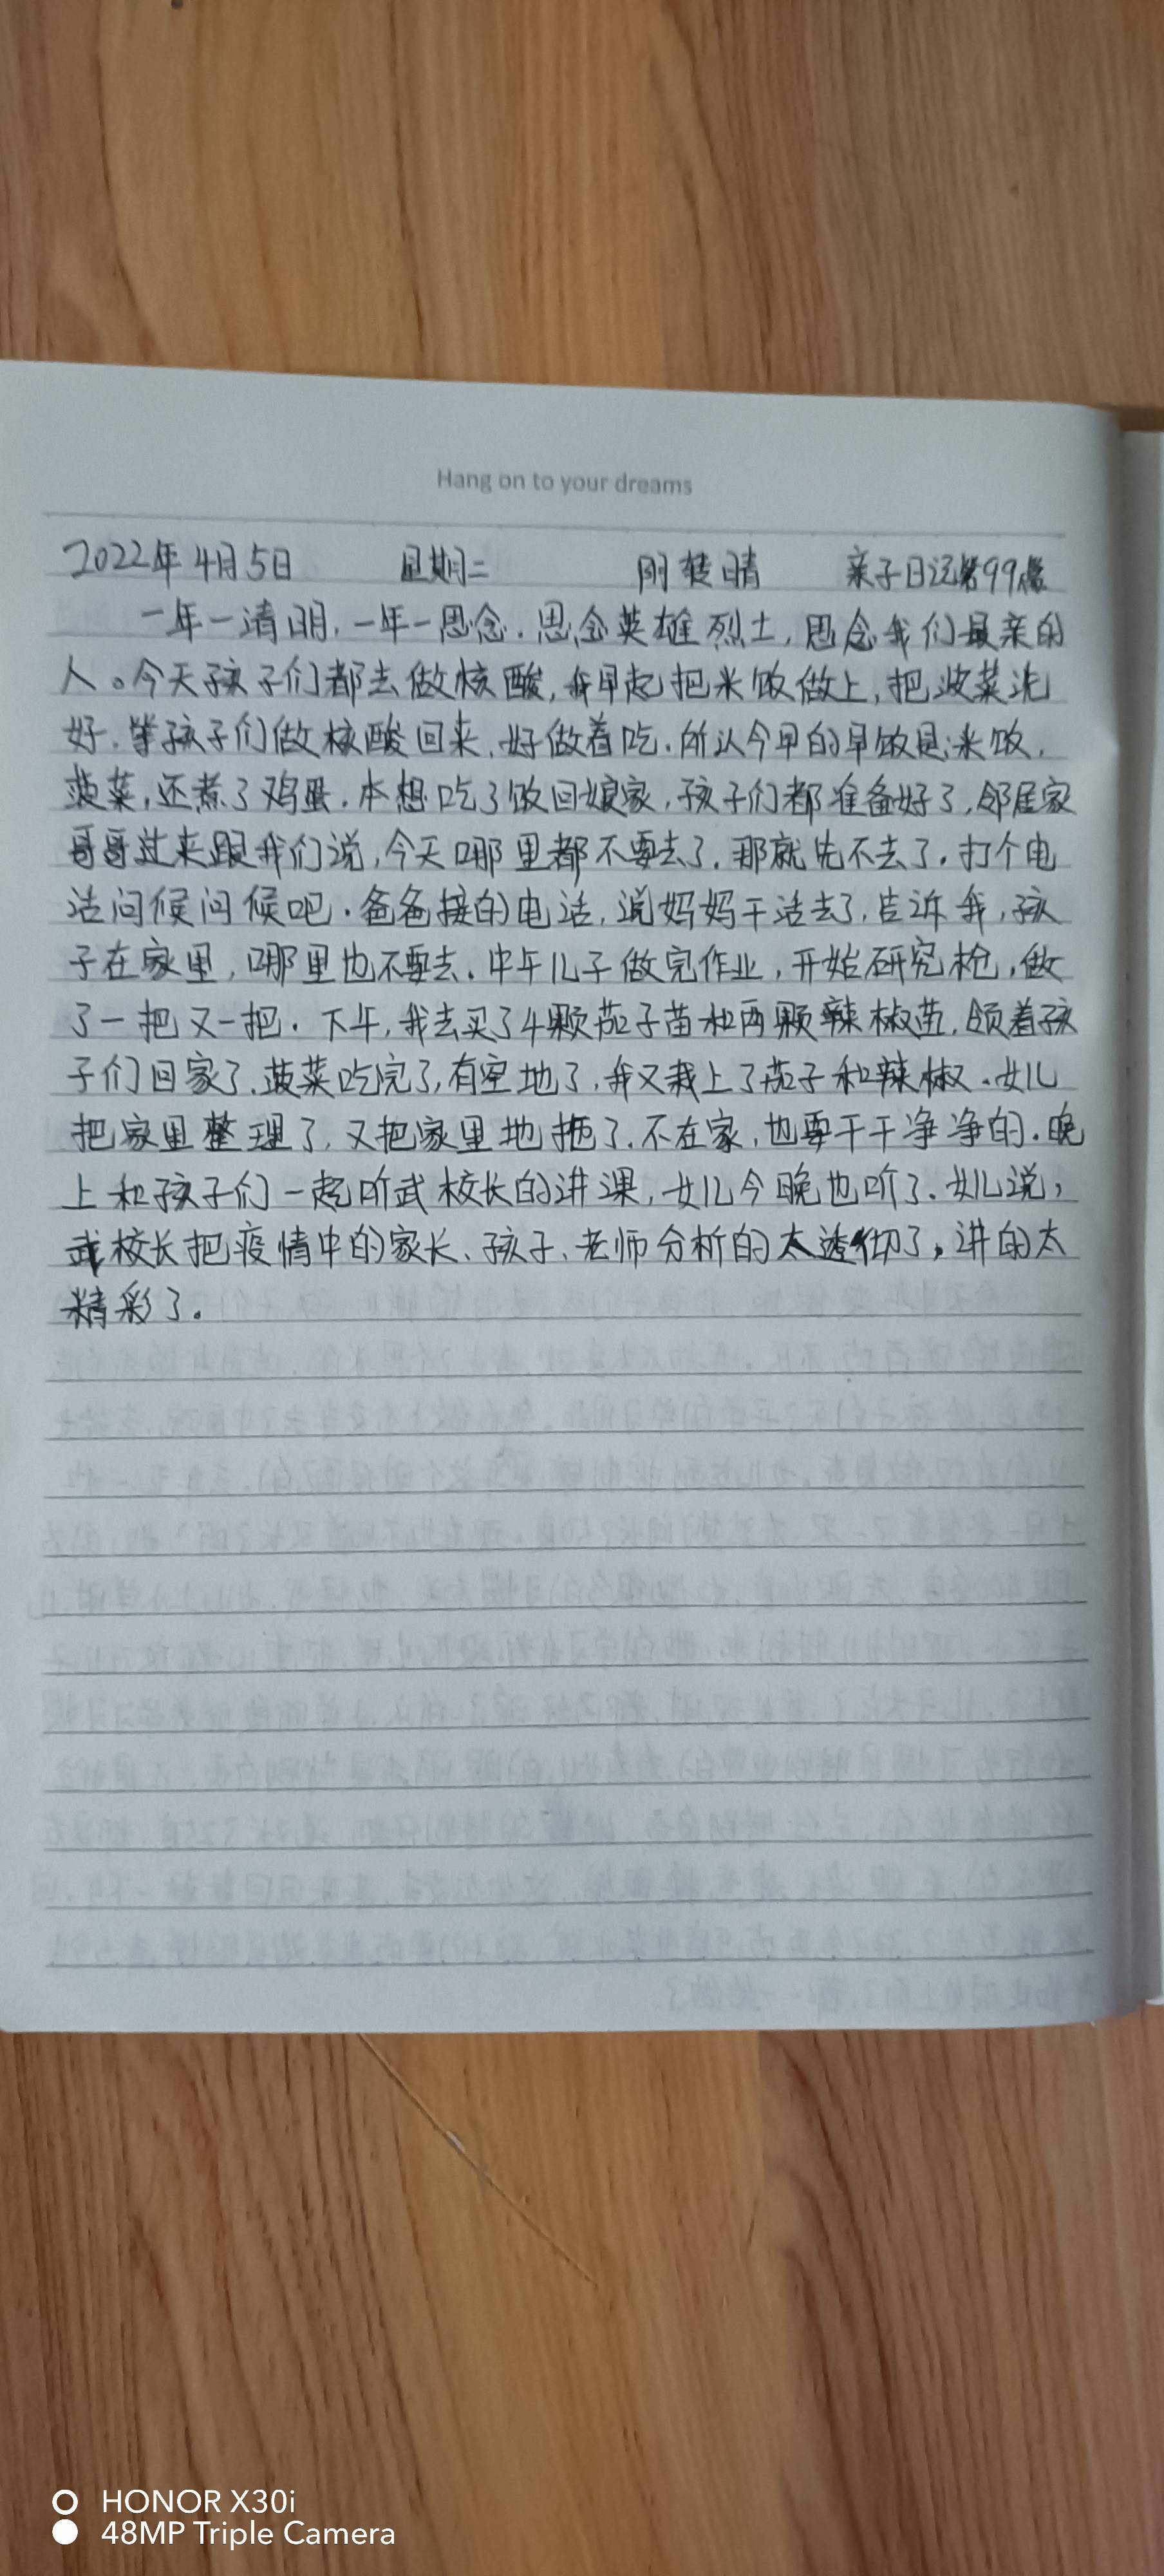 Hang on to your dreams
2022年4月5日 星期二 阴转晴 亲子日记第99篇
一年一清明,一年一思念.思念英雄烈士,思念我们最亲的
人。今天孩子们都去做核酸,我早起把米饭做上,把菠菜洗
好.等孩子们做核酸回来,好做着吃.所以今早的早饭是:米饭,
菠菜,还煮了鸡蛋.本想吃了饭回娘家,孩子们都准备好了,邻居家
哥哥过来跟我们说,今天哪里都不要去了.那就先不去了.打个电
话问候问候吧.爸爸接的电话,说妈妈干活去了,告诉我,孩
子在家里,哪里也不要去.中午儿子做完作业,开始研究枪,做
了一把又一把.下午,我去买了4颗茄子苗和两颗辣椒苗,领着孩
子们回家了.菠菜吃完了,有空地了,我又栽上了茄子和辣椒.女儿
把家里整理了,又把家里地拖了.不在家,也要干干净净的.晚
上和孩子们一起听武校长的讲课,女儿今晚也听了.女儿说,
武校长把疫情中的家长、孩子、老师分析的太透彻了,讲的太
精彩了。
HONOR X30i
48MP Triple Camera